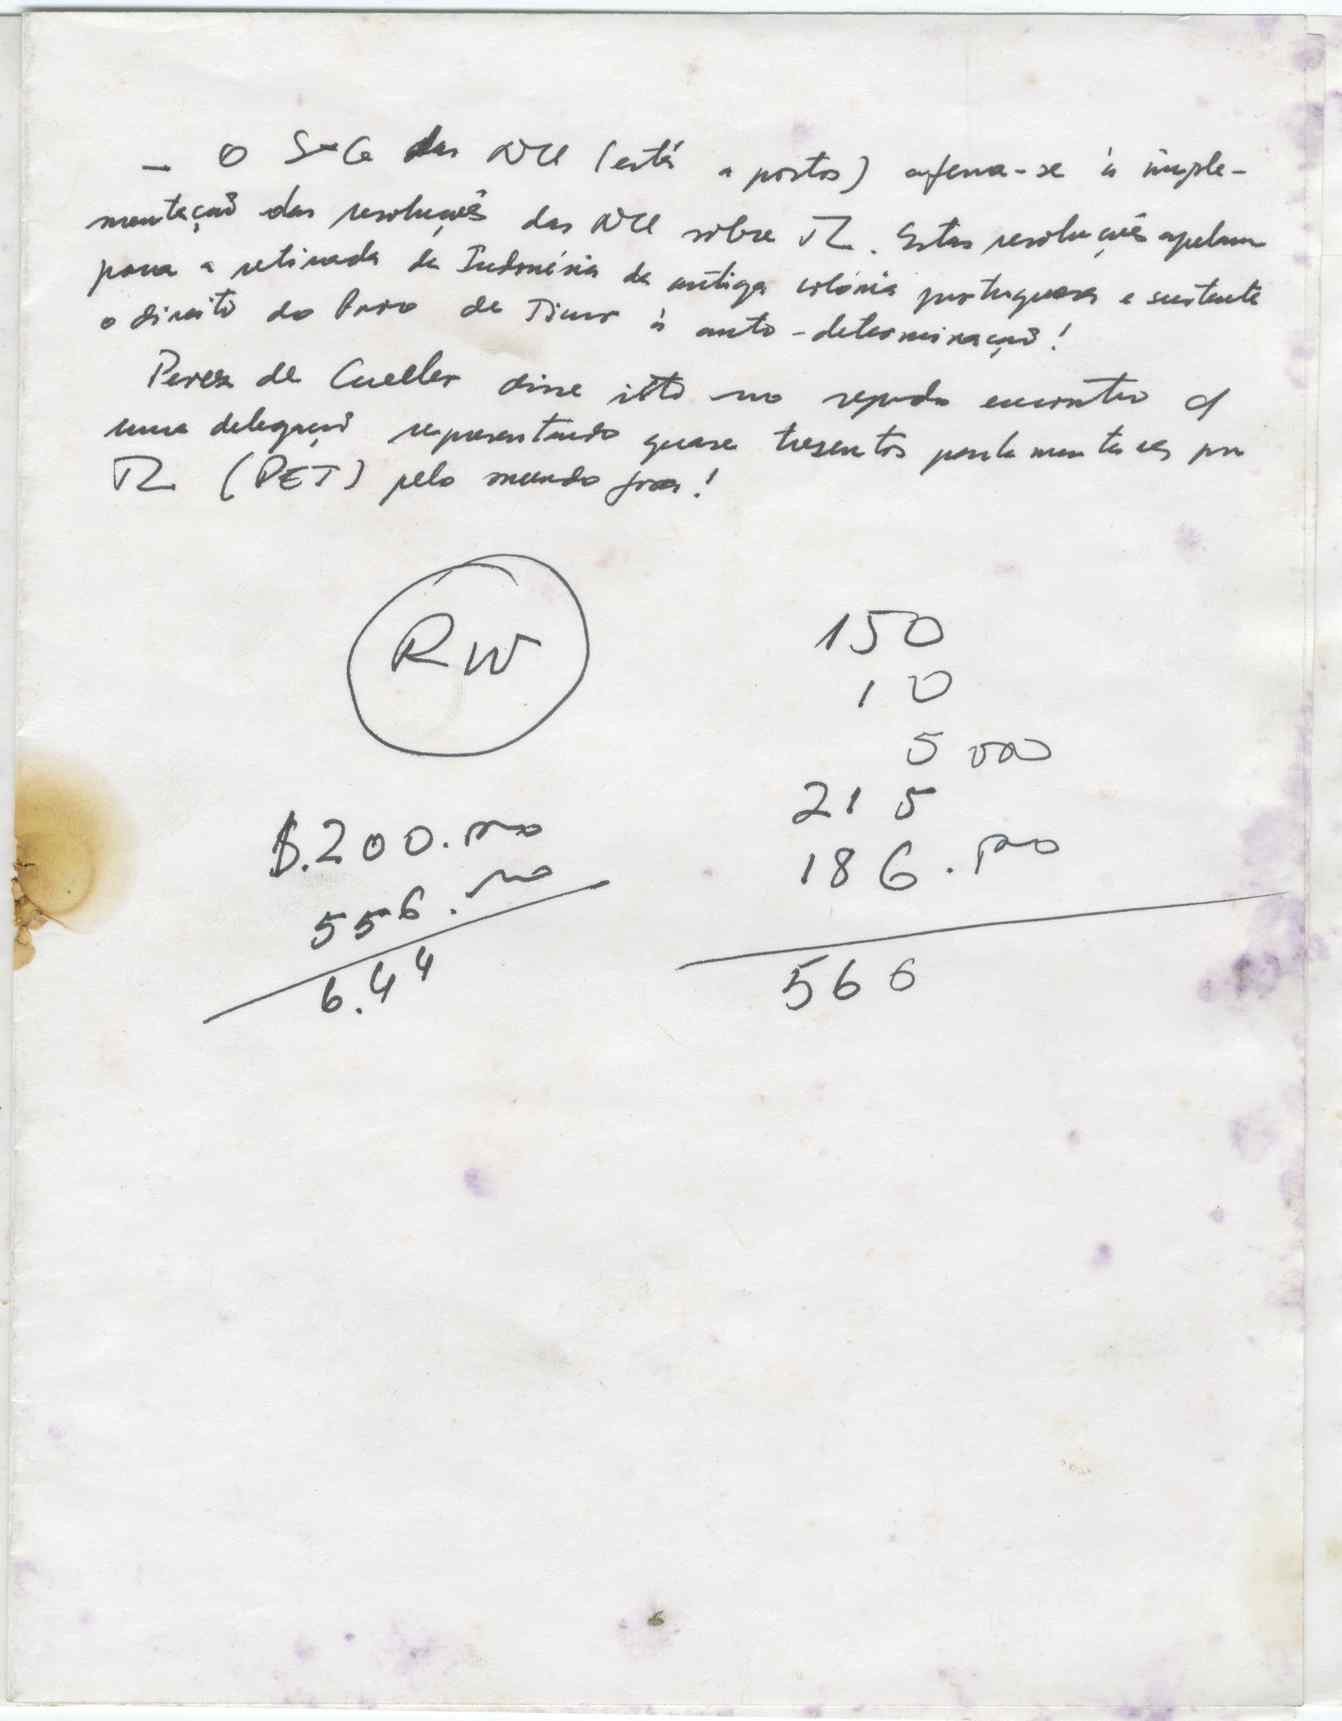 – O S-G das NU (está a postos) aferra-se à imple-
mentação das resoluções das NU sobre TL. Estas resoluções apelam
para a retirada da Indonésia da antiga colónia portuguesa e sustenta
o direito do Povo de Timor à auto-determinação!
Perez de Cuellar disse isto no segundo encontro c/
uma delegação representando quase trezentos parlamentares por
TL (PET) pelo mundo fora!
RW
150
10
5 000
215
186.000
566
$.200.000
556.000
6.44